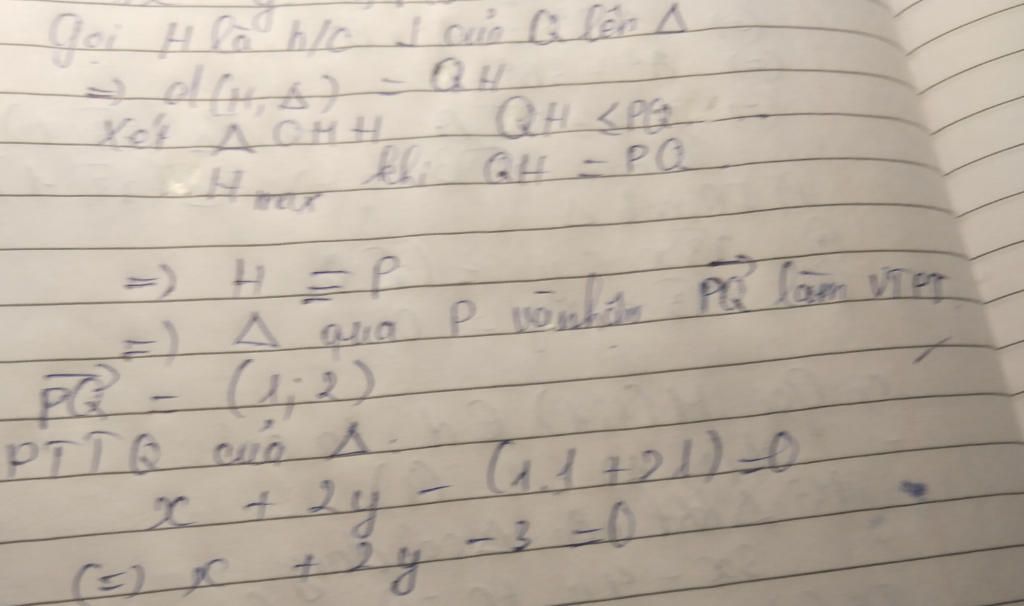 Gọi H là h/c ⊥ của Q lên Δ
=> d(H, Δ) = QH
Xét Δ QHH QH ≤ PQ
H max khi QH = PQ
=> H ≡ P
=> Δ qua P và nhân PQ làm VTPT
PQ = (1; 2)
PTTQ của Δ.
x + 2y - (1.1 + 2.1) = 0
(=) x + 2y - 3 = 0